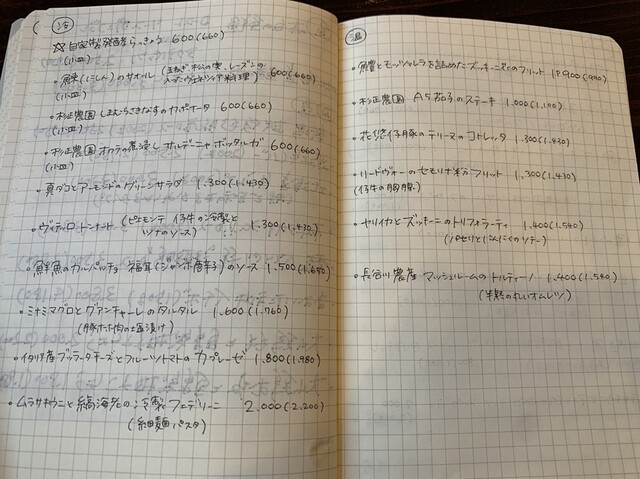 冷
☆自家製発酵らっきょう 600(660)
(小皿)
・鰊(にしん)のサオール (玉ねぎ、松の実、レーズンの
(小皿) ヴェネツィア料理) 600(660)
・松正農園 しまむらさきなすのカポナータ 600(660)
(小皿)
・松正農園 オクラの煮浸し サルデーニャボッタルガ 600(660)
(小皿)
・真ダコとアーモンドのグリーンサラダ 1.300(1.430)
・ヴィテッロ・トンナート (ピエモンテ 仔牛の冷製と
ツナのソース) 1.300(1.430)
・鮮魚のカルパッチョ 福耳(ジャンボ唐辛子)のソース 1.500(1.650)
・ミナミマグロとグアンチャーレのタルタル 1.600(1.760)
(豚ホホ肉の塩漬け)
・イタリア産ブッラータチーズとフルーツトマトのカプレーゼ 1.800(1.980)
・ムラサキウニと縞海老の冷製フェデリーニ 2.000(2.200)
(細麺パスタ)
温
・魚醤とモッツァレラを詰めたズッキーニ花のフリット 900(990)
・松正農園 A5茄子のステーキ 1.000(1.100)
・花悠仔豚のテリーヌのコトレッタ 1.300(1.430)
・リードヴォーのセモリナ粉フリット 1.300(1.430)
(仔牛の胸腺)
・ヤリイカとズッキーニのトリフォラーティ 1.400(1.540)
(パセリとにんにくのソテー)
・長谷川農産 マッシュルームのトルティーノ 1.400(1.540)
(半熟の丸いオムレツ)